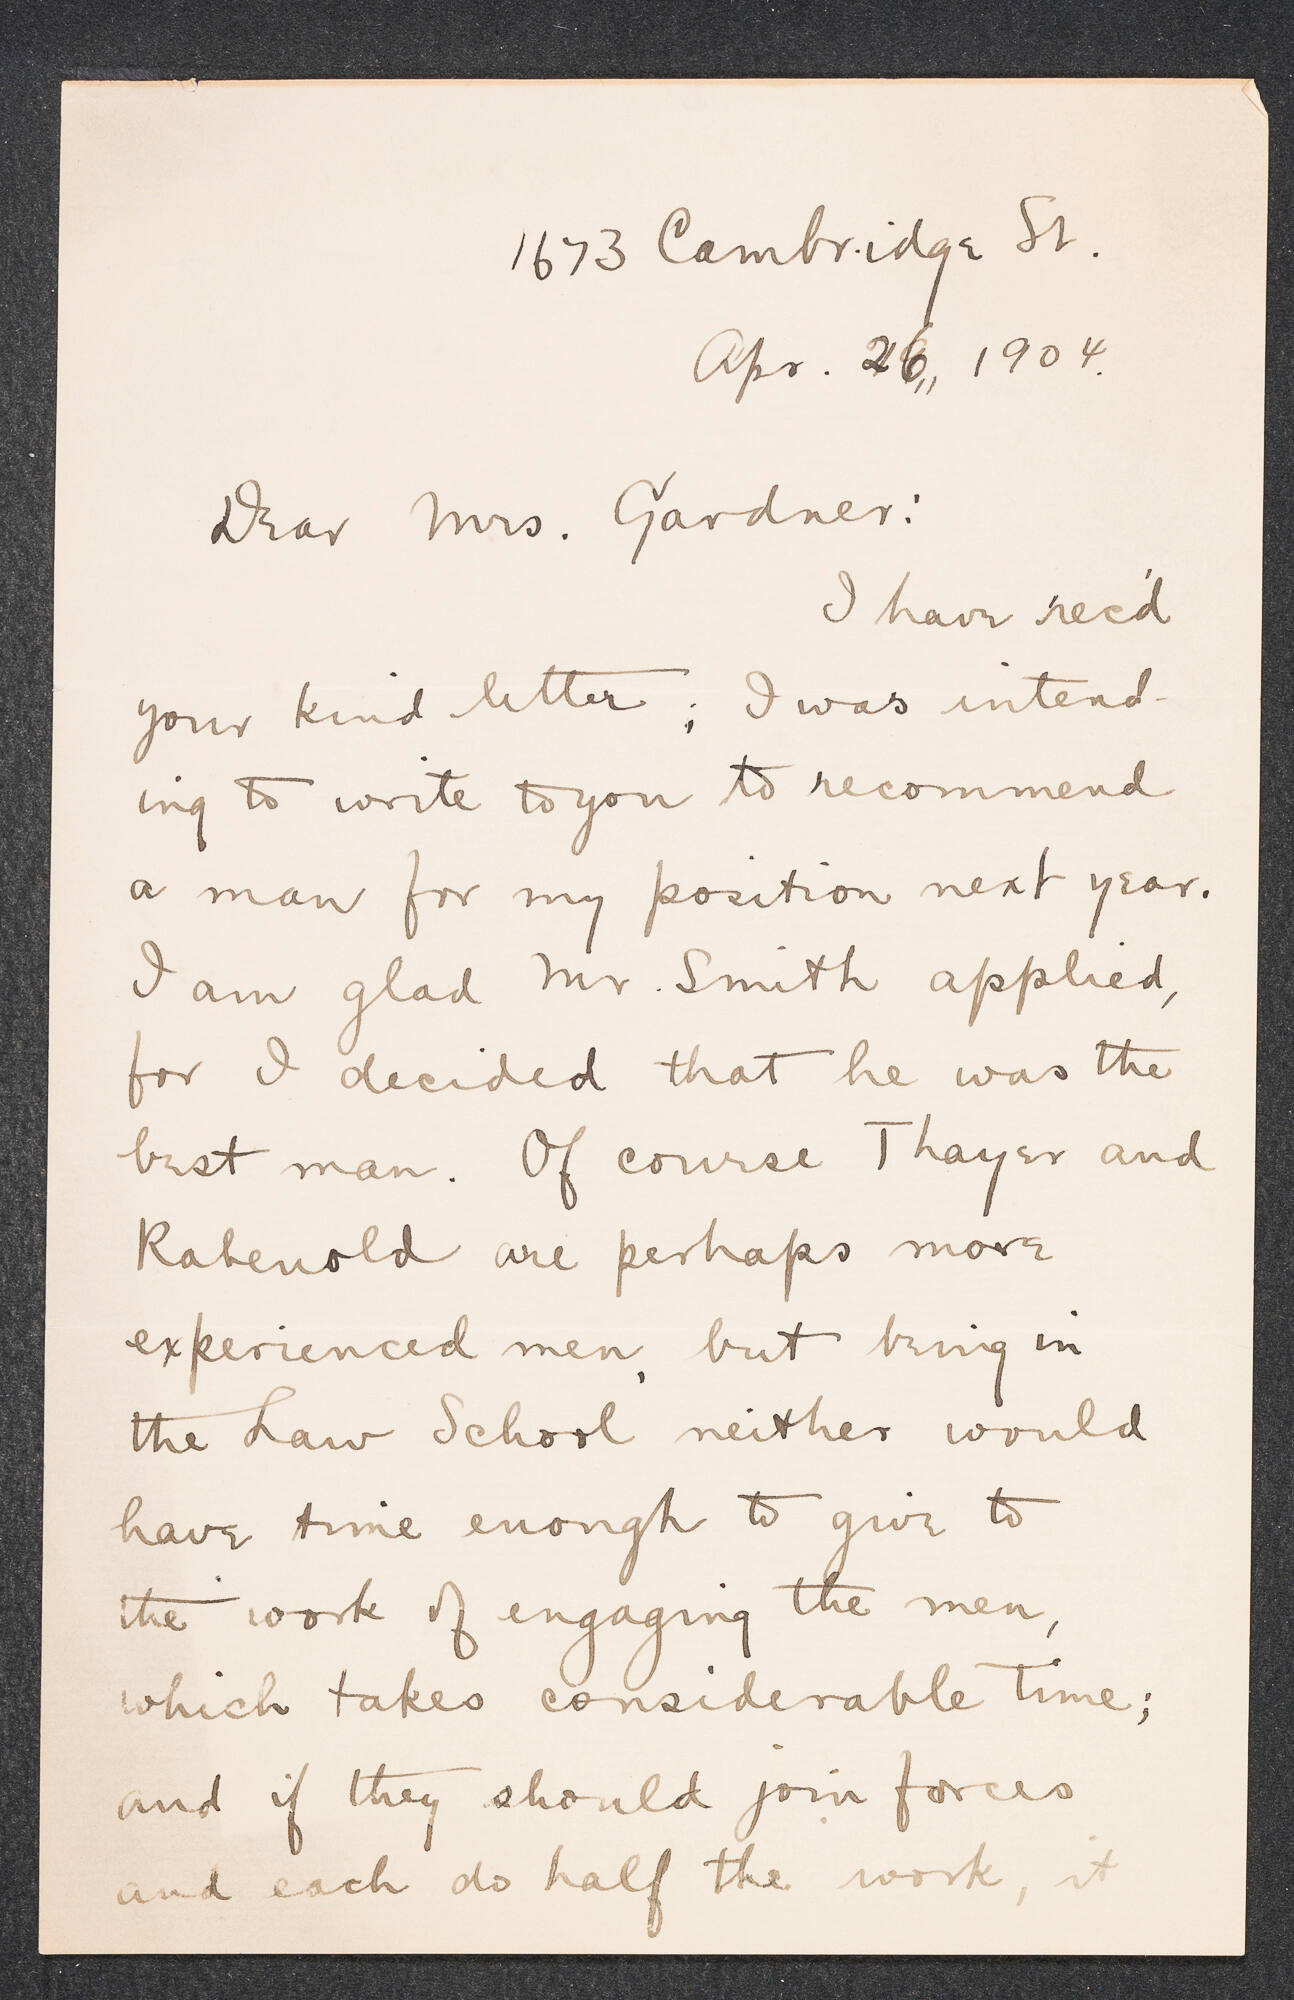 1673 Cambridge St.
Apr. 26, 1904.
Dear Mrs. Gardner:
I have rec'd
your kind letter; I was intend-
ing to write to you to recommend
a man for my position next year.
I am glad Mr. Smith applied,
for I decided that he was the
best man. Of course Thayer and
Rabenold are perhaps more
experienced men, but being in
the Law School neither would
have time enough to give to
the work of engaging the men,
which takes considerable time;
and if they should join forces
and each do half the work, it